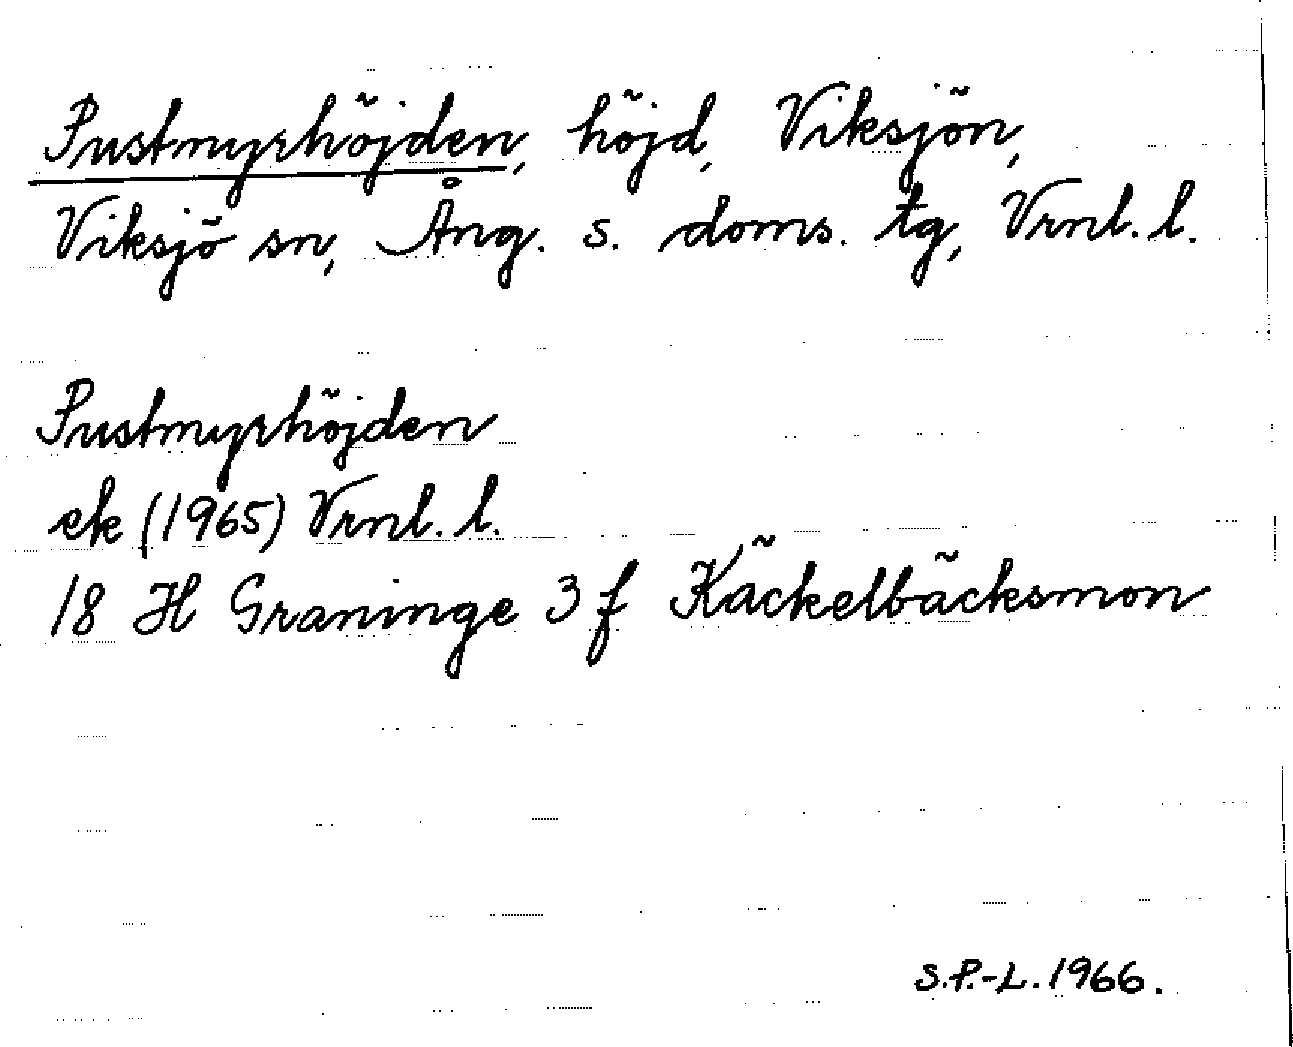 Pustmyrhöjden, höjd, Viksjön,
Viksjö sn, Ång. s. doms. tg, Vrnl. l.
Pustmyrhöjden
ek (1965) Vrnl. l.
18 H Graninge 3 f Käckelbäcksmon
S.P.-L. 1966.